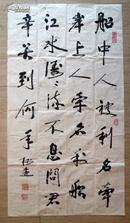 船中人被利名牵
岸上人牵名利船
江水流不息问君
辛苦到何年